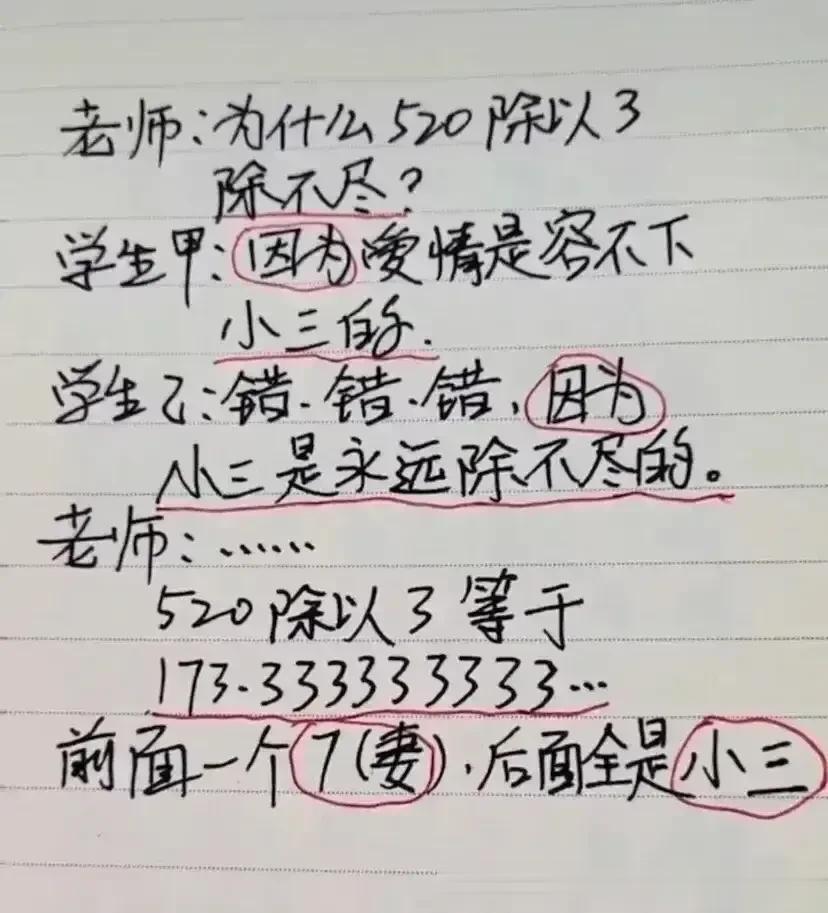 老师:为什么520除以3
除不尽?
学生甲:因为爱情是容不下
小三的.
学生乙:错.错.错,因为
小三是永远除不尽的。
老师:……
520除以3等于
173.333333333…
前面一个7(妻),后面全是小三